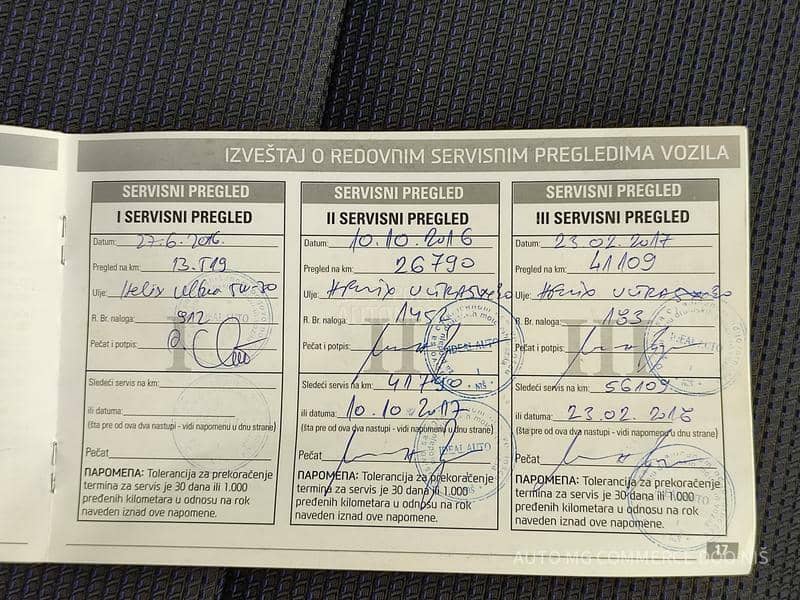 IZVEŠTAJ O REDOVNIM SERVISNIM PREGLEDIMA VOZILA
SERVISNI PREGLED
I SERVISNI PREGLED
Datum: 27.6.2016.
Pregled na km: 13.519
Ulje: Helix Ultra 5W-30
R. Br. naloga: 912
Pečat i potpis:
Sledeći servis na km:
ili datuma:
(šta pre od ova dva nastupi - vidi napomenu u dnu strane)
Pečat
NAPOMEPA: Tolerancija za prekoračenje
termina za servis je 30 dana ili 1.000
pređenih kilometara u odnosu na rok
naveden iznad ove napomene.
SERVISNI PREGLED
II SERVISNI PREGLED
Datum: 10.10.2016
Pregled na km: 26790
Ulje: ULTRA
R. Br. naloga: 1452
Pečat i potpis:
IDEAL AUTO
NIŠ
Sledeći servis na km: 41790
ili datuma: 10.10.2017
(šta pre od ova dva nastupi - vidi napomenu u dnu strane)
Pečat
IDEAL AUTO
NAPOMEPA: Tolerancija za prekoračenje
termina za servis je 30 dana ili 1.000
pređenih kilometara u odnosu na rok
naveden iznad ove napomene.
SERVISNI PREGLED
III SERVISNI PREGLED
Datum: 23.02.2017
Pregled na km: 41109
Ulje: ULTRA
R. Br. naloga: 193
Pečat i potpis:
IDEAL AUTO
Sledeći servis na km: 56109
ili datuma: 23.02.2018
(šta pre od ova dva nastupi - vidi napomenu u dnu strane)
Pečat
NAPOMEPA: Tolerancija za prekoračenje
termina za servis je 30 dana ili 1.000
pređenih kilometara u odnosu na rok
naveden iznad ove napomene.
17
AUTO MG COMMERCE DOO NIŠ